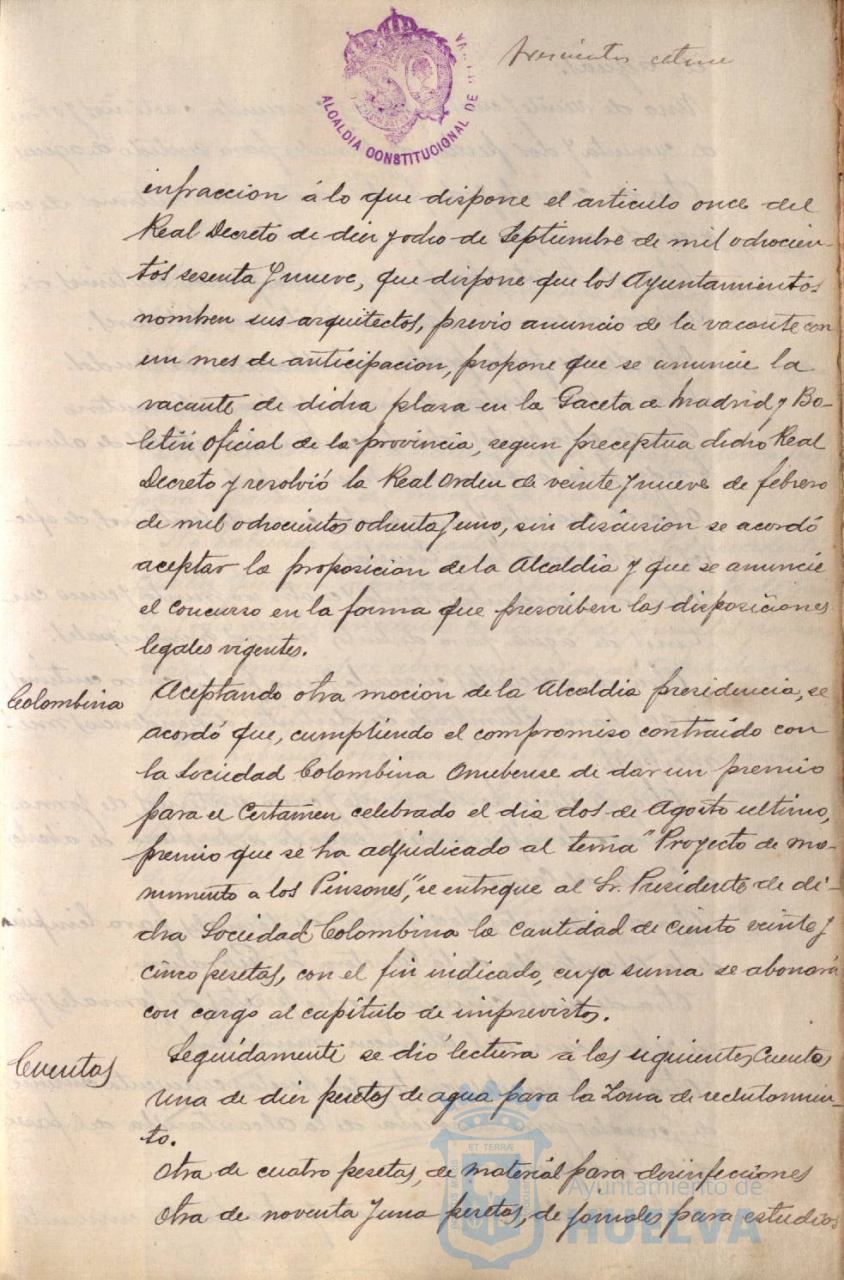 trescientos catorce
ALCALDIA CONSTITUCIONAL DE
infraccion á lo que dispone el articulo once del
Real Decreto de diez y ocho de Septiembre de mil ochocien-
tos sesenta y nueve, que dispone que los Ayuntamientos
nombren sus arquitectos, previo anuncio de la vacante con
un mes de anticipacion, propone que se anuncie la
vacante de dicha plaza en la Gaceta de Madrid y Bo-
letin oficial de la provincia, segun preceptua dicho Real
Decreto y resolvió la Real Orden de veinte y nueve de febrero
de mil ochocientos ochenta y uno, sin discusion se acordó
aceptar la proposicion de la Alcaldia y que se anuncie
el concurso en la forma que prescriben las disposiciones
legales vigentes.
Colombina
Aceptando otra mocion de la Alcaldia presidencia, se
acordó que, cumpliendo el compromiso contraido con
la Sociedad Colombina Onubense de dar un premio
para el Certamen celebrado el dia dos de Agosto ultimo,
premio que se ha adjudicado al tema "Proyecto de mo-
numento a los Pinzones", se entregue al Sr. Presidente de di-
cha Sociedad Colombina la cantidad de ciento veinte y
cinco pesetas, con el fin indicado, cuya suma se abonará
con cargo al capitulo de imprevistos.
Cuentas
Seguidamente se dió lectura á las siguientes Cuentas
una de diez pesetas de agua para la Zona de reclutamien-
to.
Otra de cuatro pesetas, de material para desinfecciones
Otra de noventa y una pesetas, de jornales para estudios
ET TERRÆ
Ayuntamiento de
HUELVA